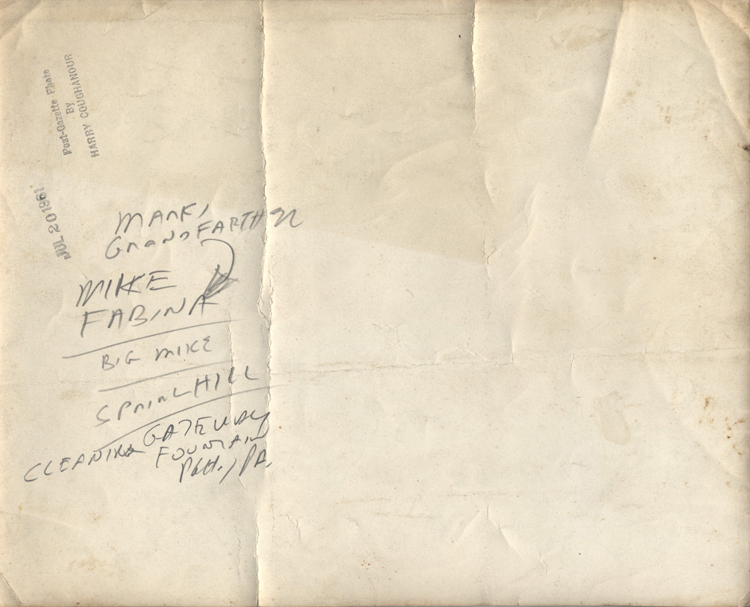 Post-Gazette Photo
By
HARRY COUGHANOUR
JUL 20 1961
MARK,
GRANDFARTHER
MIKE
FABINA
BIG MIKE
SPRING HILL
CLEANING GATEWAY
FOUNTAIN
Pitt., PA.